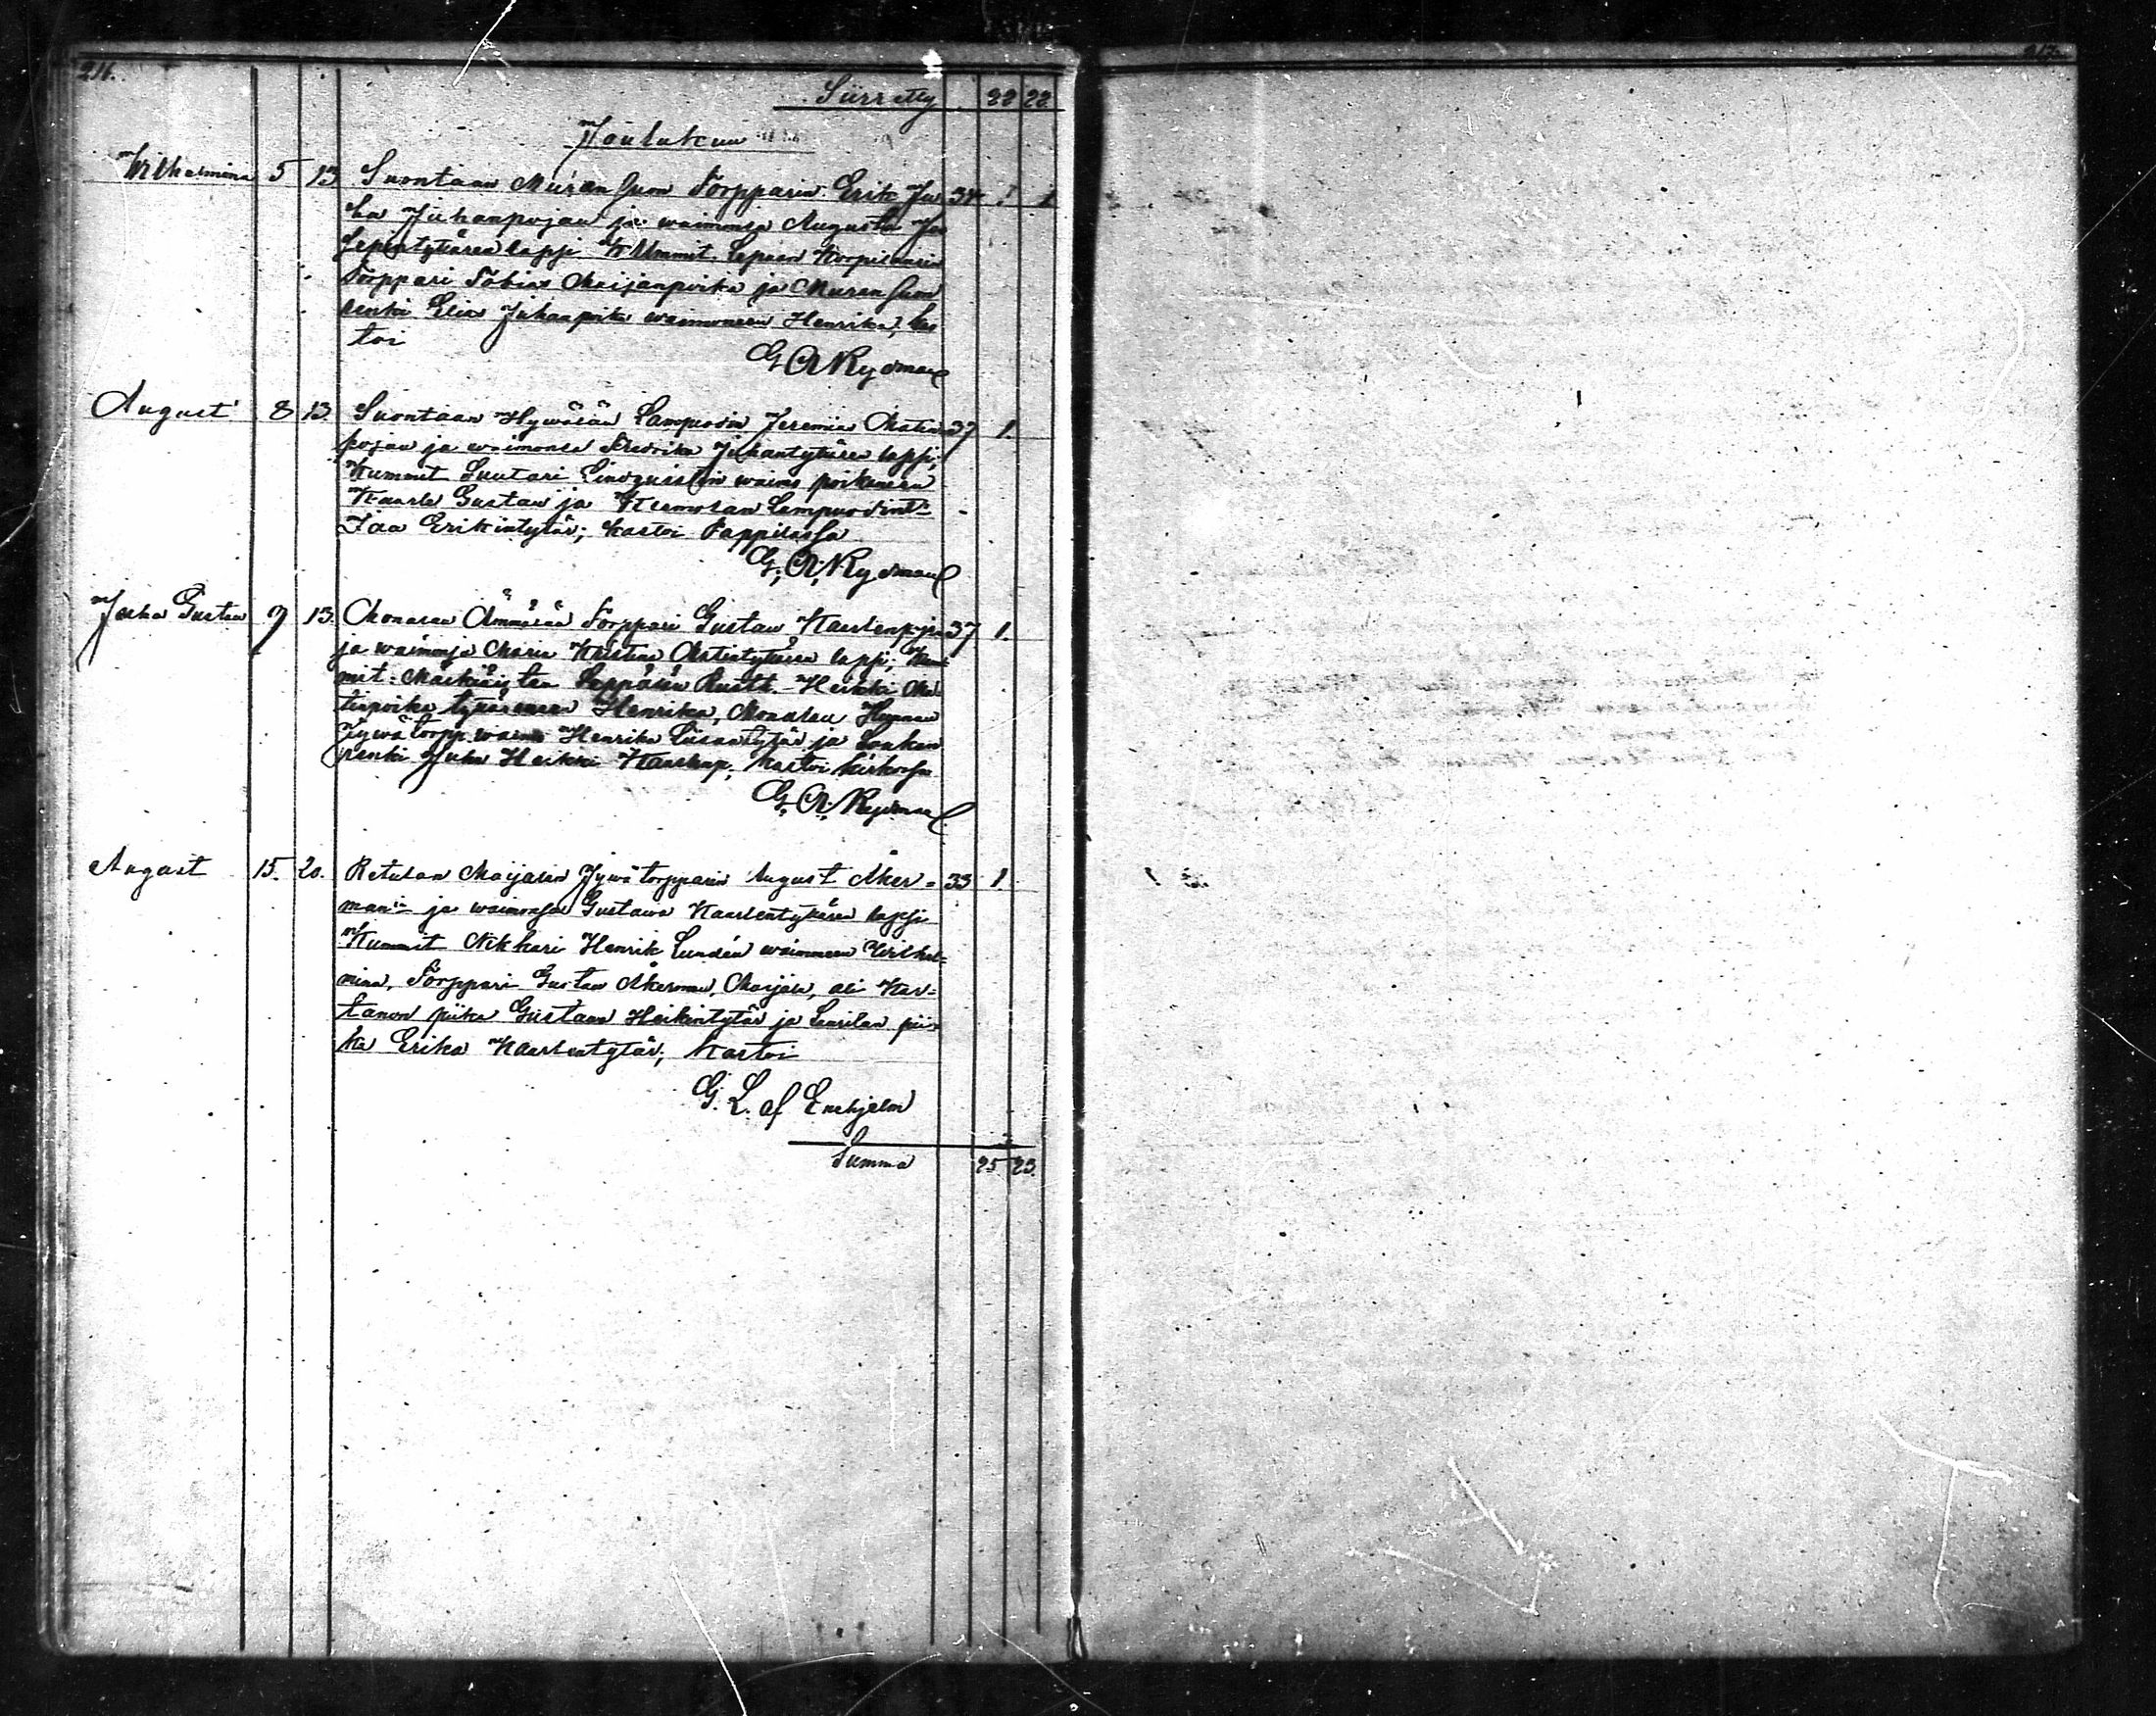 216.
217.
Siirretty 22 22
Joulukuu
Wilhelmina 5 13 Suontaan Murron Suon Torpparin Erik Ju- 34 1 1
ha Juhanpojan ja waimonsa Augusta Jo
sepintytären lapsi Kummit. Lepaan Korpilaurin
Torppari Tobias Maijanpoika ja Murron Suon
renki Elias Juhanpoika waimoneen Henrika, kas
toi
G A Rydman
August 8 13. Suontaan Hywösän Lampuodin Jeremias Matin 37 1.
pojan ja waimonsa Fredrika Juhantytären lapsi;
Kummit Suutari Lindquistin waimo poikaneen
Kaarle Gustaw ja Kiemolan Lampuodint:
Iaa Erikintytär; kastoi Pappilassa
G. A. Rydman
Juha Gustaa 7 13. Monaalan Ämmäsän Torppari Gustaw Kaarlenpojan 37 1.
ja waimonsa Maria Kristina Antintytären lapsi; Kum-
mit: Mäskäisten Seppälän Rustt. Heikki Ma-
tinpoika tyttärensä Henrika, Monaalan
Jywätorpp. waimo Henrika Liisantytär ja
renki Juha Heikki Kaarlenp. kastoi kirkossa
G. A. Rydman.
August 15. 20. Retulan Maijalan Jywätorpparin August Åker- 33 1.
man:in ja waimonsa Gustawa Kaarlentytären lapsi
Kummit Nikkari Henrik Lundén waimoneen Wilhel-
mina, Torppari Gustaw Åkerman, Maijala, ali Kar-
tanon piika Gustawa Heikintytär ja Laurilan pii-
ka Erika Kaarlentytär; kastoi
G. L. af Enehjelm
Summa 25 23.